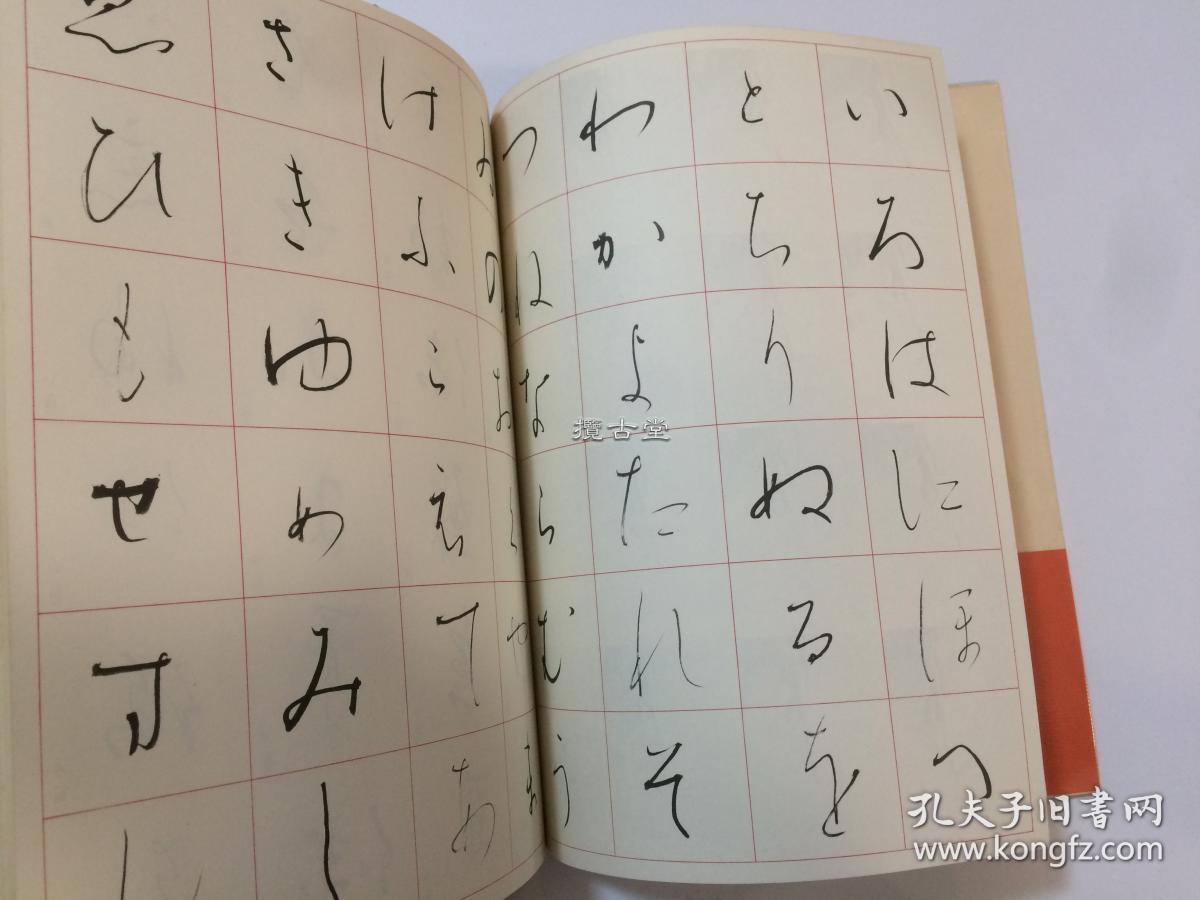 いろはにほへ
とちりぬるを
わかよたれそ
つねならむう
ゐのおくやま
けふこえてあ
さきゆめみし
ゑひもせすん
攬古堂
孔夫子旧书网
www.kongfz.com